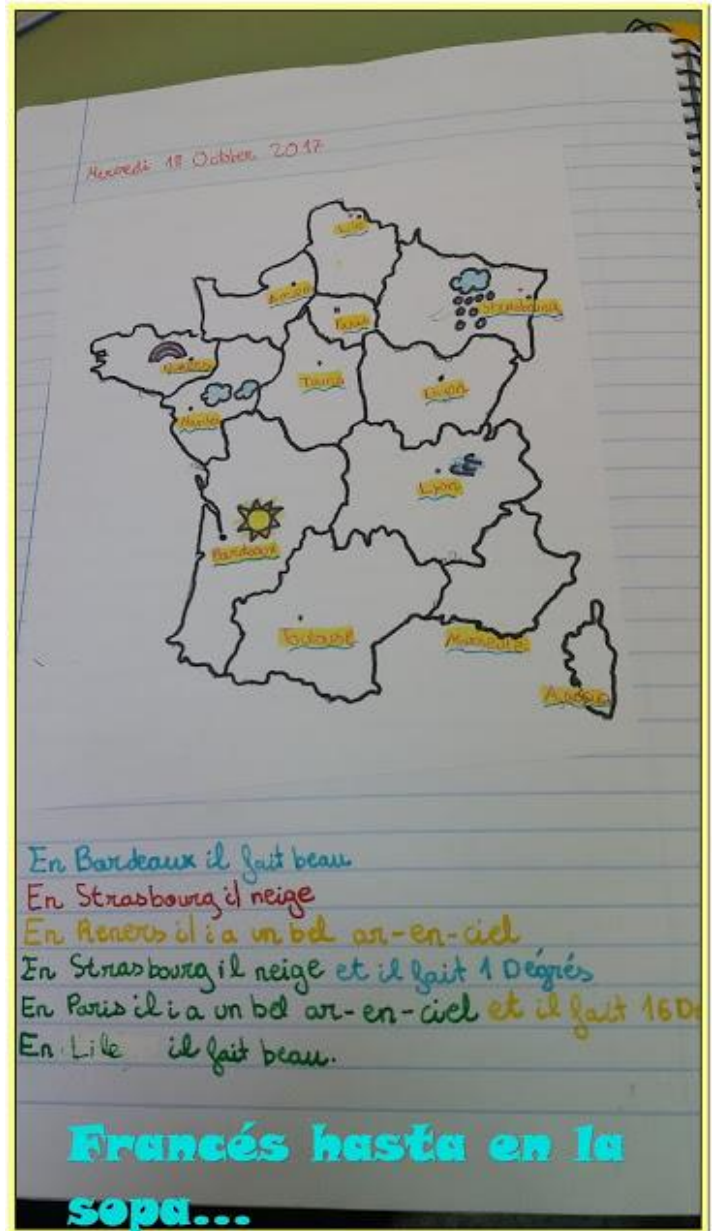 Mercredi 18 Octobre 2017
Lile
Amiens
Strasbourg
Paris
Tours
Dijon
Nantes
Lyon
Bordeaux
Toulouse
Marseille
Ajaccio
En Bordeaux il fait beau
En Strasbourg il neige
En Reners il i a un bel ar-en-ciel
En Strasbourg il neige et il fait 1 Dégrés
En Paris il i a un bel ar-en-ciel et il fait 16 De
En Lile il fait beau.
Francés hasta en la
sopa...